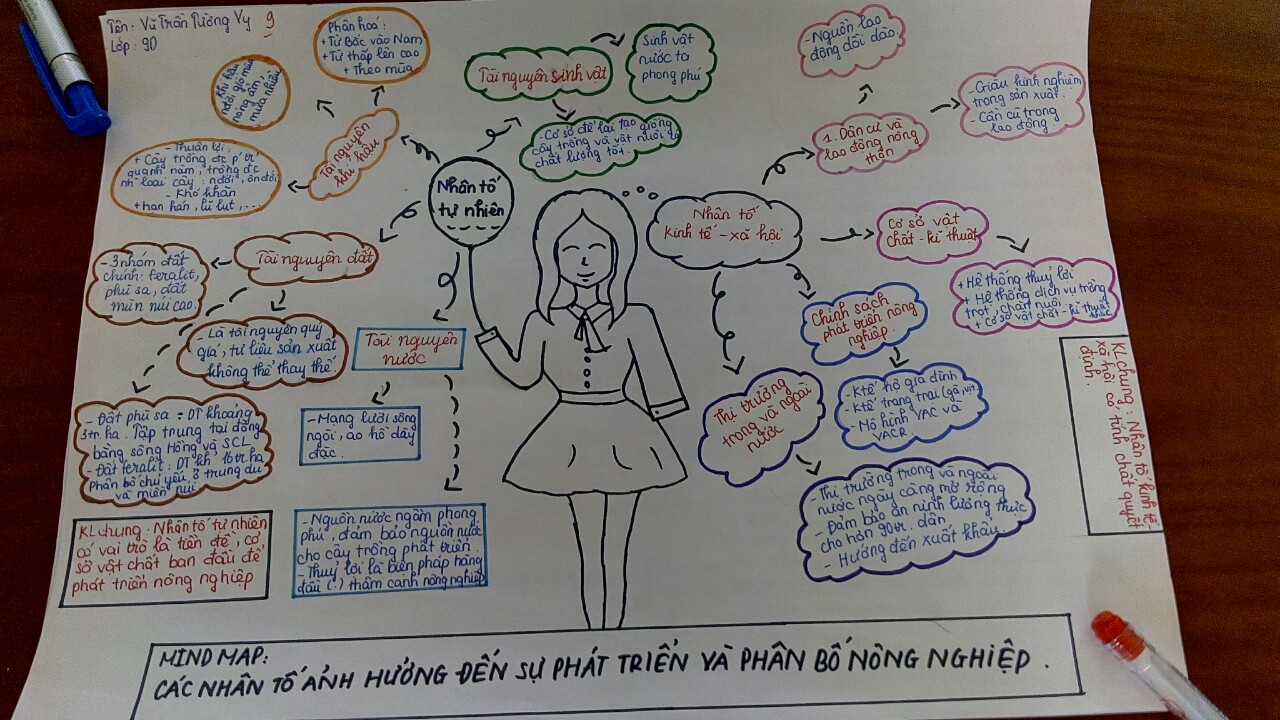 Tên: Vũ Trần Tường Vy
9
Lớp: 9D
Phân hoá:
+ Từ Bắc vào Nam
+ Từ thấp lên cao
+ Theo mùa
Khí hậu
nhiệt đới gió mùa
nóng ẩm,
mưa nhiều
- Thuận lợi:
+ Cây trồng đc p.tr'
quanh năm, trồng đc
nh loại cây: n.đới, ôn đới
- Khó khăn
+ hạn hán, lũ lụt,...
Tài nguyên
khí hậu
Tài nguyên sinh vật
Sinh vật
nước ta
phong phú
- Cơ sở để lai tạo giống
cây trồng và vật nuôi có
chất lượng tốt.
Nhân tố
tự nhiên
Tài nguyên đất
- 3 nhóm đất
chính: feralit,
phù sa, đất
mùn núi cao.
- Là tài nguyên quý
giá, tư liệu sản xuất
không thể thay thế.
- Đất phù sa: DT khoảng
3tr.ha. Tập trung tại đồng
bằng sông Hồng và SCL
- Đất feralit: DT kh 16tr.ha
Phân bố chủ yếu ở trung du
và miền núi
Tài nguyên
nước
- Mạng lưới sông
ngòi, ao hồ dày
đặc.
- Nguồn nước ngầm phong
phú, đảm bảo nguồn nước
cho cây trồng phát triển.
- Thuỷ lợi là biện pháp hàng
đầu (.) thâm canh nông nghiệp
KL chung: Nhân tố tự nhiên
có vai trò là tiền đề, cơ
sở vật chất ban đầu để
phát triển nông nghiệp
Nhân tố
kinh tế - xã hội
1. Dân cư và
lao động nông
thôn
- Nguồn lao
động dồi dào.
- Giàu kinh nghiệm
trong sản xuất.
- Cần cù trong
lao động
Cơ sở vật
chất - kĩ thuật
+ Hệ thống thuỷ lợi
+ Hệ thống dịch vụ trồng
trọt, chăn nuôi
+ Cơ sở vật chất - kĩ thuật
khác
Chính sách
phát triển nông
nghiệp
- Ktế hộ gia đình
- Ktế trang trại (gà, vịt
- Mô hình VAC và
VACR.
Thị trường
trong và ngoài
nước
- Thị trường trong và ngoài
nước ngày càng mở rộng
- Đảm bảo an ninh lương thực
cho hơn 90tr. dân.
- Hướng đến xuất khẩu
KL chung: Nhân tố kinh tế-
xã hội có tính chất quyết
định.
MIND MAP:
CÁC NHÂN TỐ ẢNH HƯỞNG ĐẾN SỰ PHÁT TRIỂN VÀ PHÂN BỐ NÔNG NGHIỆP.